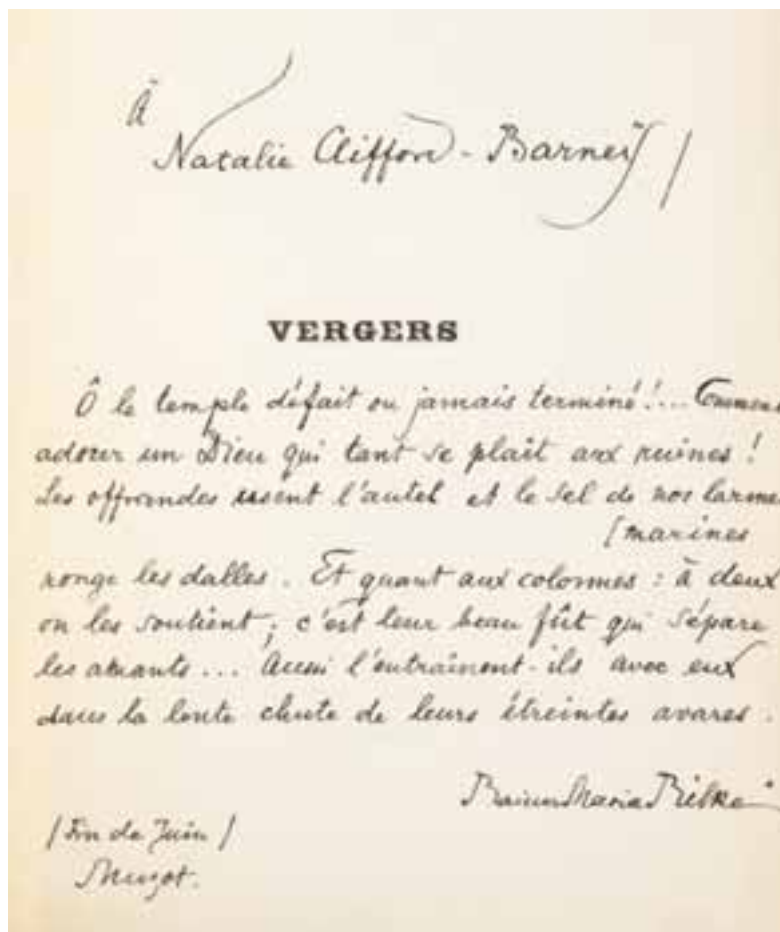 À
Natalie Clifford-Barney /
VERGERS
Ô le temple défait ou jamais terminé!... Commen
adorer un Dieu qui tant se plaît aux ruines !
Les offrandes usent l'autel et le sel de nos larmes
[marines
ronge les dalles. Et quant aux colonnes : à deux
on les soutient ; c'est leur beau fût qui sépare
les amants... Aussi l'entraînent-ils avec eux
dans la lente chute de leurs étreintes avares.
Rainer Maria Rilke
/ Fin de Juin /
Muzot.